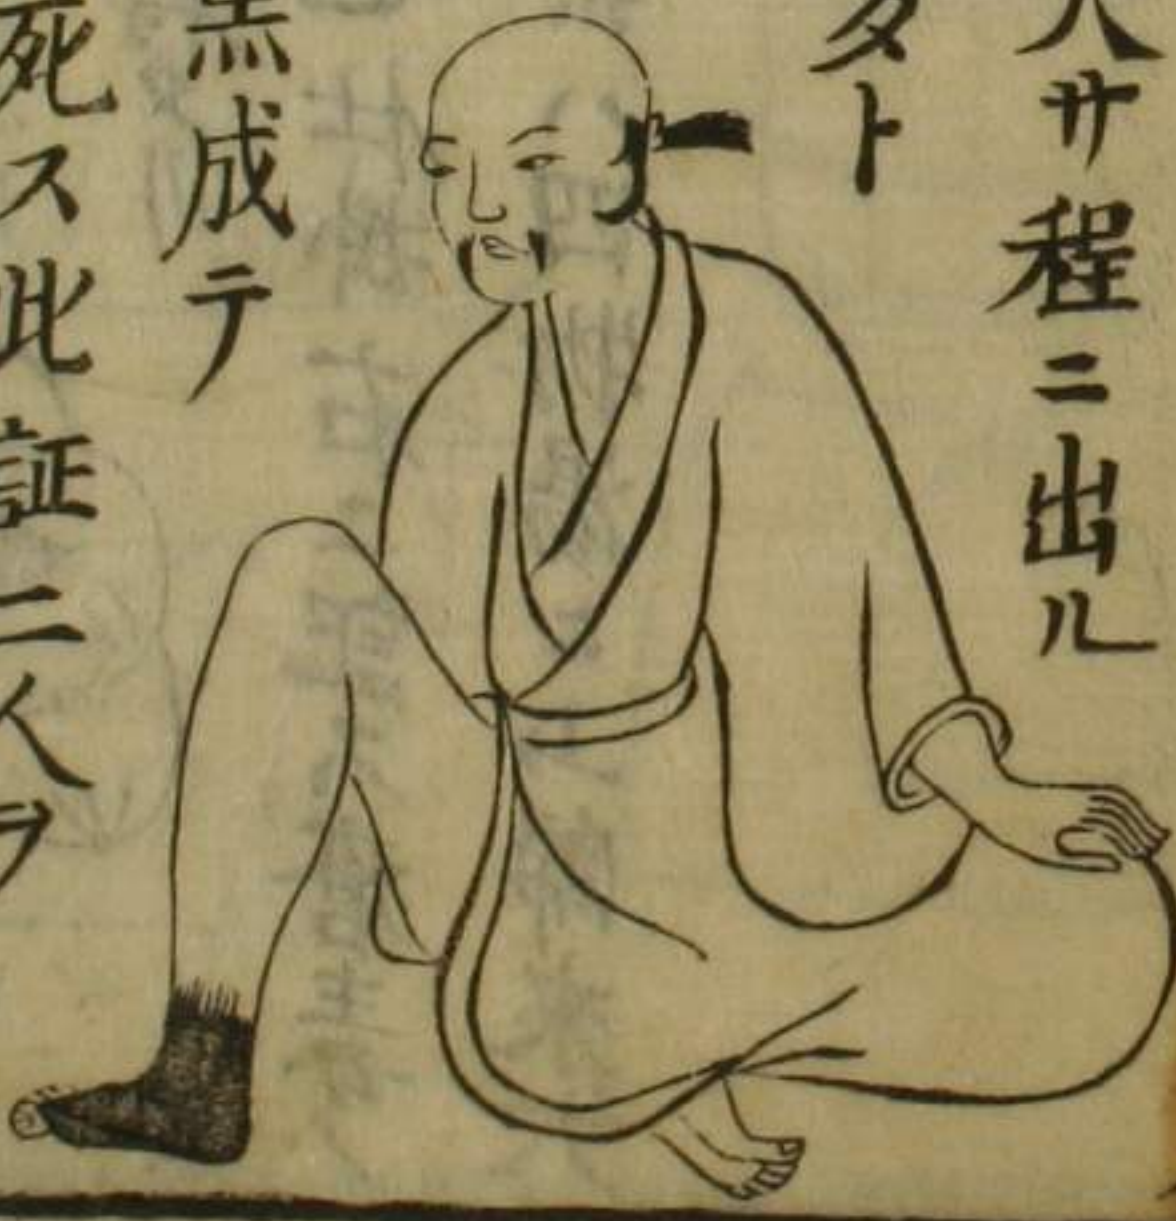 サ程ニ出ル
タト
黒成テ
死ス此証二人ヲ